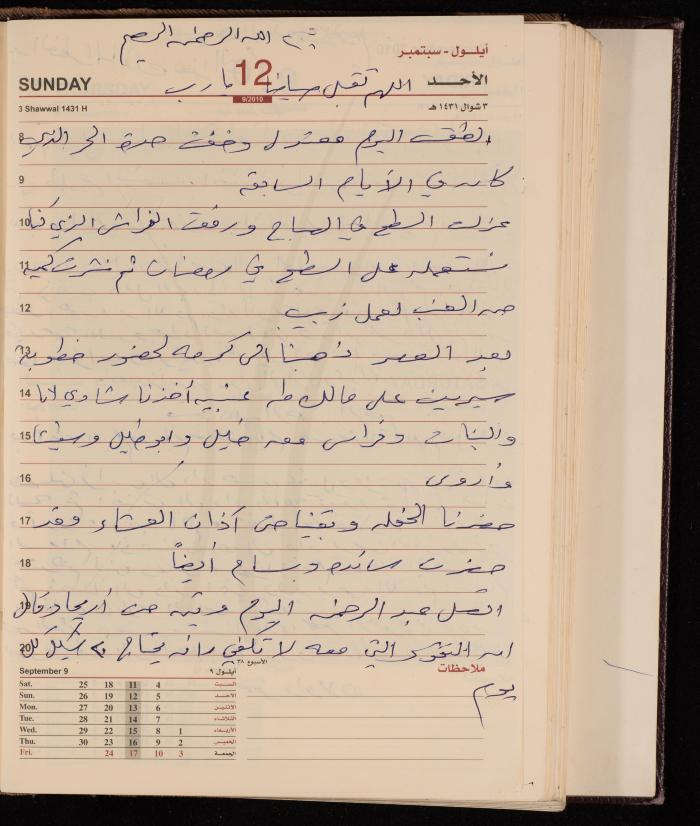 بسم الله الرحمن الرحيم
أيلـول - سبتمبر
SUNDAY 12 الأحـد
اللهم تقبل صيامنا يا رب
9/2010
3 Shawwal 1431 H ٣ شوال ١٤٣١ هـ
8 الطقس اليوم معتدل وخفت حدة الحر الذي
9 كان في الأيام السابقة
10 عزلت السطح في الصباح ورفعت الفراش الذي كنا
11 نستعمله على السطح في رمضان ثم نشرت كمية
12 من العنب لعمل زبيب
13 بعد العصر ذهبنا الى كرمه لحضور خطوبة
14 سيرين على مالك طه عنبه أخذنا شادي لانا
15 والبنات وفراس معه خليل وابو خليل
16 وأروى
17 حضرنا الحفله وبقينا حتى آذان العشاء وقد
18 حضرت سائده وبسام أيضاً
19 اتصل عبد الرحمن اليوم مرتين من أريحا وقال
20 ان النقود التي معه لا تكفي وانه يحتاج ٢٠ شيكل كل
يوم
ملاحظات
الأسبوع ٣٨
September 9 أيلـول ٩
Sat. 25 18 11 4 السبت
Sun. 26 19 12 5 الأحـد
Mon. 27 20 13 6 الاثنين
Tue. 28 21 14 7 الثلاثاء
Wed. 29 22 15 8 1 الأربعاء
Thu. 30 23 16 9 2 الخميس
Fri. 24 17 10 3 الجمعة